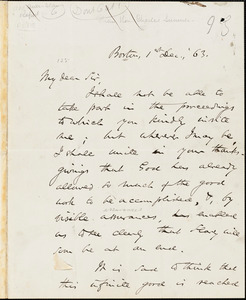 93
Boston, 1st Dec., '63.
My dear Sir,
I shall not be able to
take part in the proceedings
to which you kindly invite
me; but wherever I may be,
I shall unite in your thanks-
givings that God has already
allowed so much of the good
work to be accomplished, &, by
visible assurances, has enabled
us to see clearly that Slavery will
soon be at an end.
It is sad to think that
this infinite good is reached